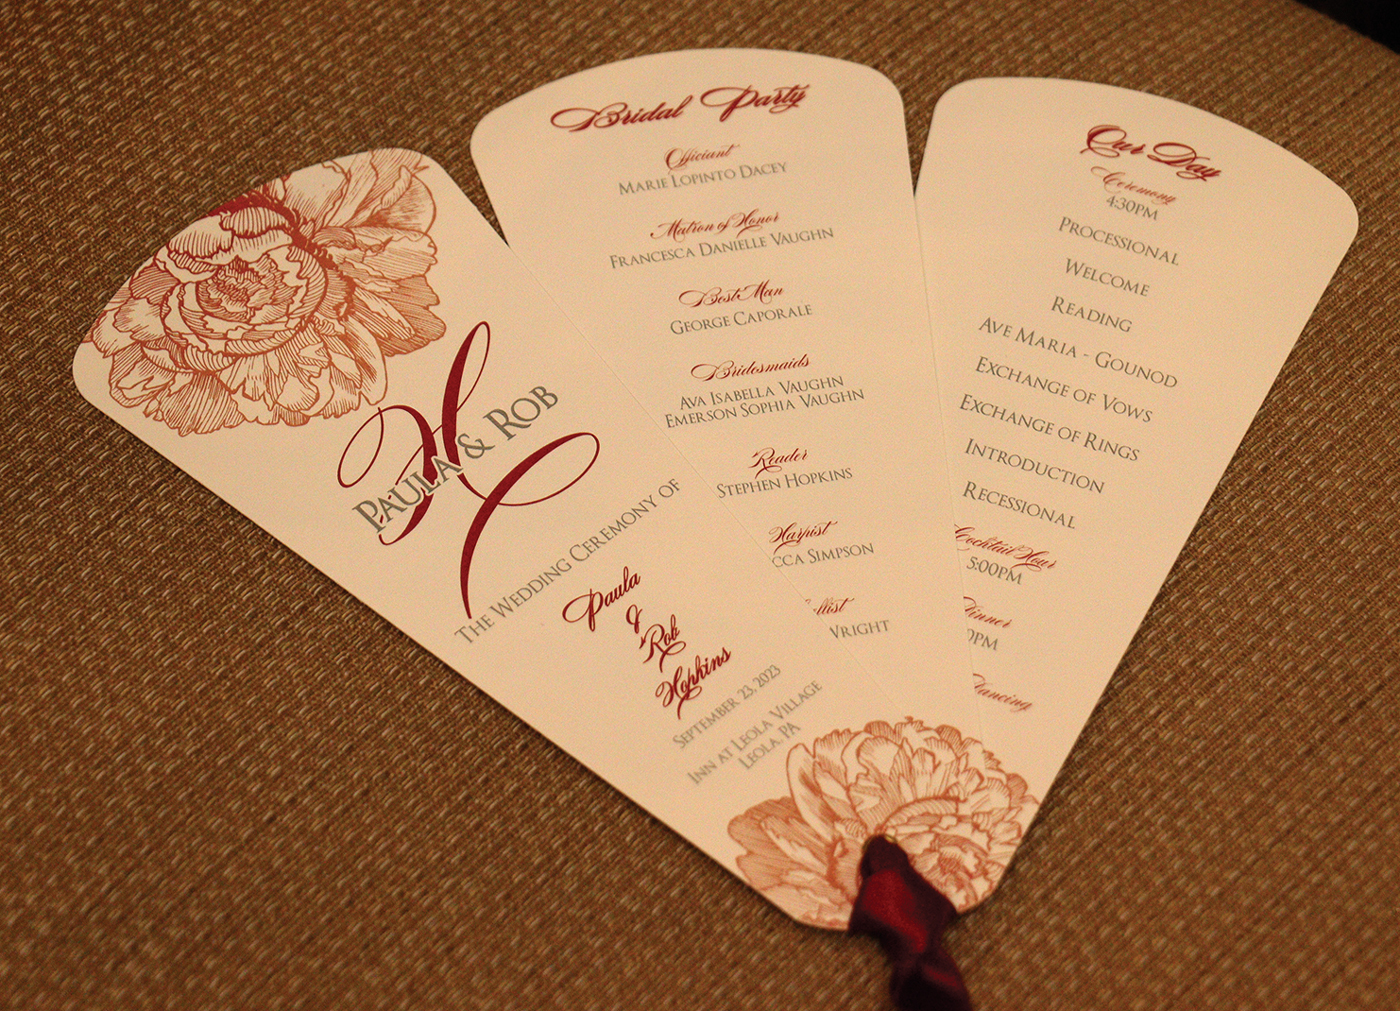 H
Paula & Rob
The Wedding Ceremony of
Paula
&
Rob
Hopkins
September 23, 2023
Inn at Leola Village
Leola, PA
Bridal Party
Officiant
Marie Lopinto Dacey
Matron of Honor
Francesca Danielle Vaughn
Best Man
George Caporale
Bridesmaids
Ava Isabella Vaughn
Emerson Sophia Vaughn
Reader
Stephen Hopkins
Harpist
Simpson
Wright
Our Day
Ceremony
4:30PM
Processional
Welcome
Reading
Ave Maria - Gounod
Exchange of Vows
Exchange of Rings
Introduction
Recessional
Cocktail Hour
5:00PM
Dinner
PM
Dancing